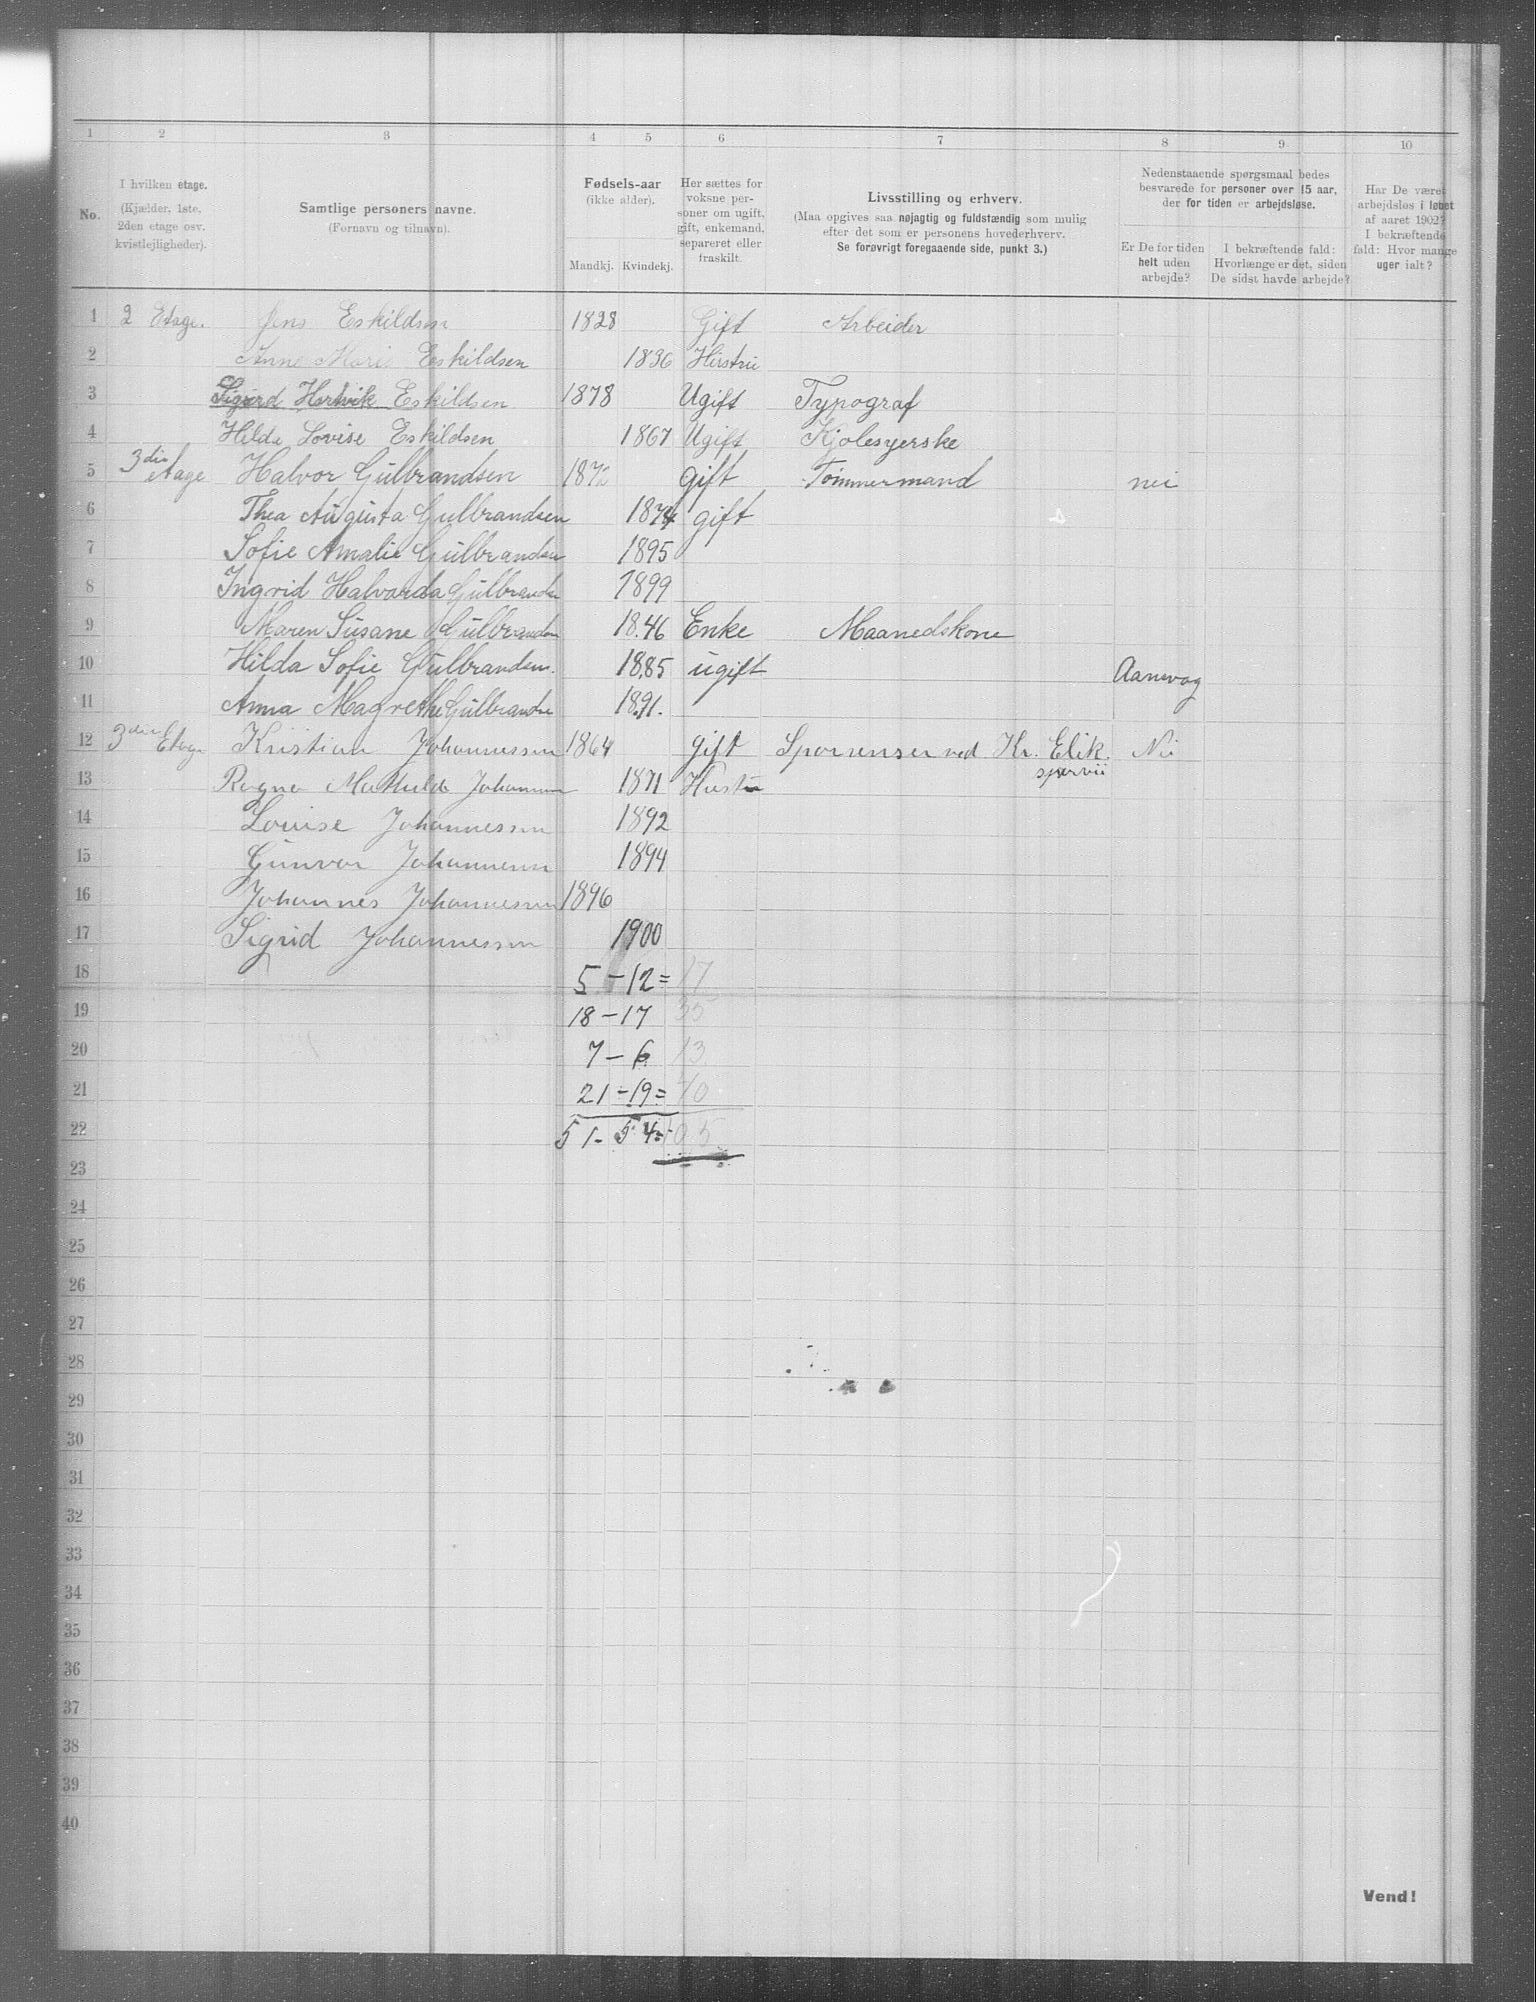 1 2 3 4 5 6 7 8 9 10
No.
I hvilken etage.
(Kjælder, 1ste,
2den etage osv.
kvistlejligheder).
Samtlige personers navne.
(Fornavn og tilnavn).
Fødsels-aar
(ikke alder).
Mandkj. Kvindekj.
Her sættes for
voksne per-
soner om ugift,
gift, enkemand,
separeret eller
fraskilt.
Livsstilling og erhverv.
(Maa opgives saa nøjagtig og fuldstændig som mulig
efter det som er personens hovederhverv.
Se forøvrigt foregaaende side, punkt 3.)
Nedenstaaende spørgsmaal bedes
besvarede for personer over 15 aar,
der for tiden er arbejdsløse.
Er De for tiden
helt uden
arbejde?
I bekræftende fald:
Hvorlænge er det, siden
De sidst havde arbejde?
Har De været
arbejdsløs i løbet
af aaret 1902?
I bekræftende
fald: Hvor mange
uger ialt?
1 2 Etage. Jens Eskildsen 1828 Gift Arbeider
2 Anne Marie Eskildsen 1836 Hustru
3 Sigurd Hartvik Eskildsen 1878 Ugift Typograf
4 Hilda Lovise Eskildsen 1867 Ugift Kjolesyerske
5 3die Etage Halvor Gulbrandsen 1872 gift Tømmermand nei
6 Thea Augusta Gulbrandsen 1874 gift
7 Sofie Amalie Gulbrandsen 1895
8 Ingrid Halvarda Gulbrandsen 1899
9 Maren Susane Gulbrandsen 1846 Enke Maanedskone
10 Hilda Sofie Gulbrandsen. 1885 ugift
11 Anna Magrethe Gulbrandsen 1891.
12 3die Etage Kristian Johannessen 1864 gift Sporrenser ved Kr. Elek. Nei
sporvei
13 Ragna Mathilde Johannessen 1871 Hustru
14 Louise Johannessen 1892
15 Gunvor Johannessen 1894
16 Johannes Johannessen 1896
17 Sigrid Johannessen 1900
18 5 - 12 = 17
19 18 - 17 35
20 7 - 6 13
21 21 - 19 = 40
22 51 - 54 = 105
23
24
25
26
27
28
29
30
31
32
33
34
35
36
37
38
39
40
Vend!